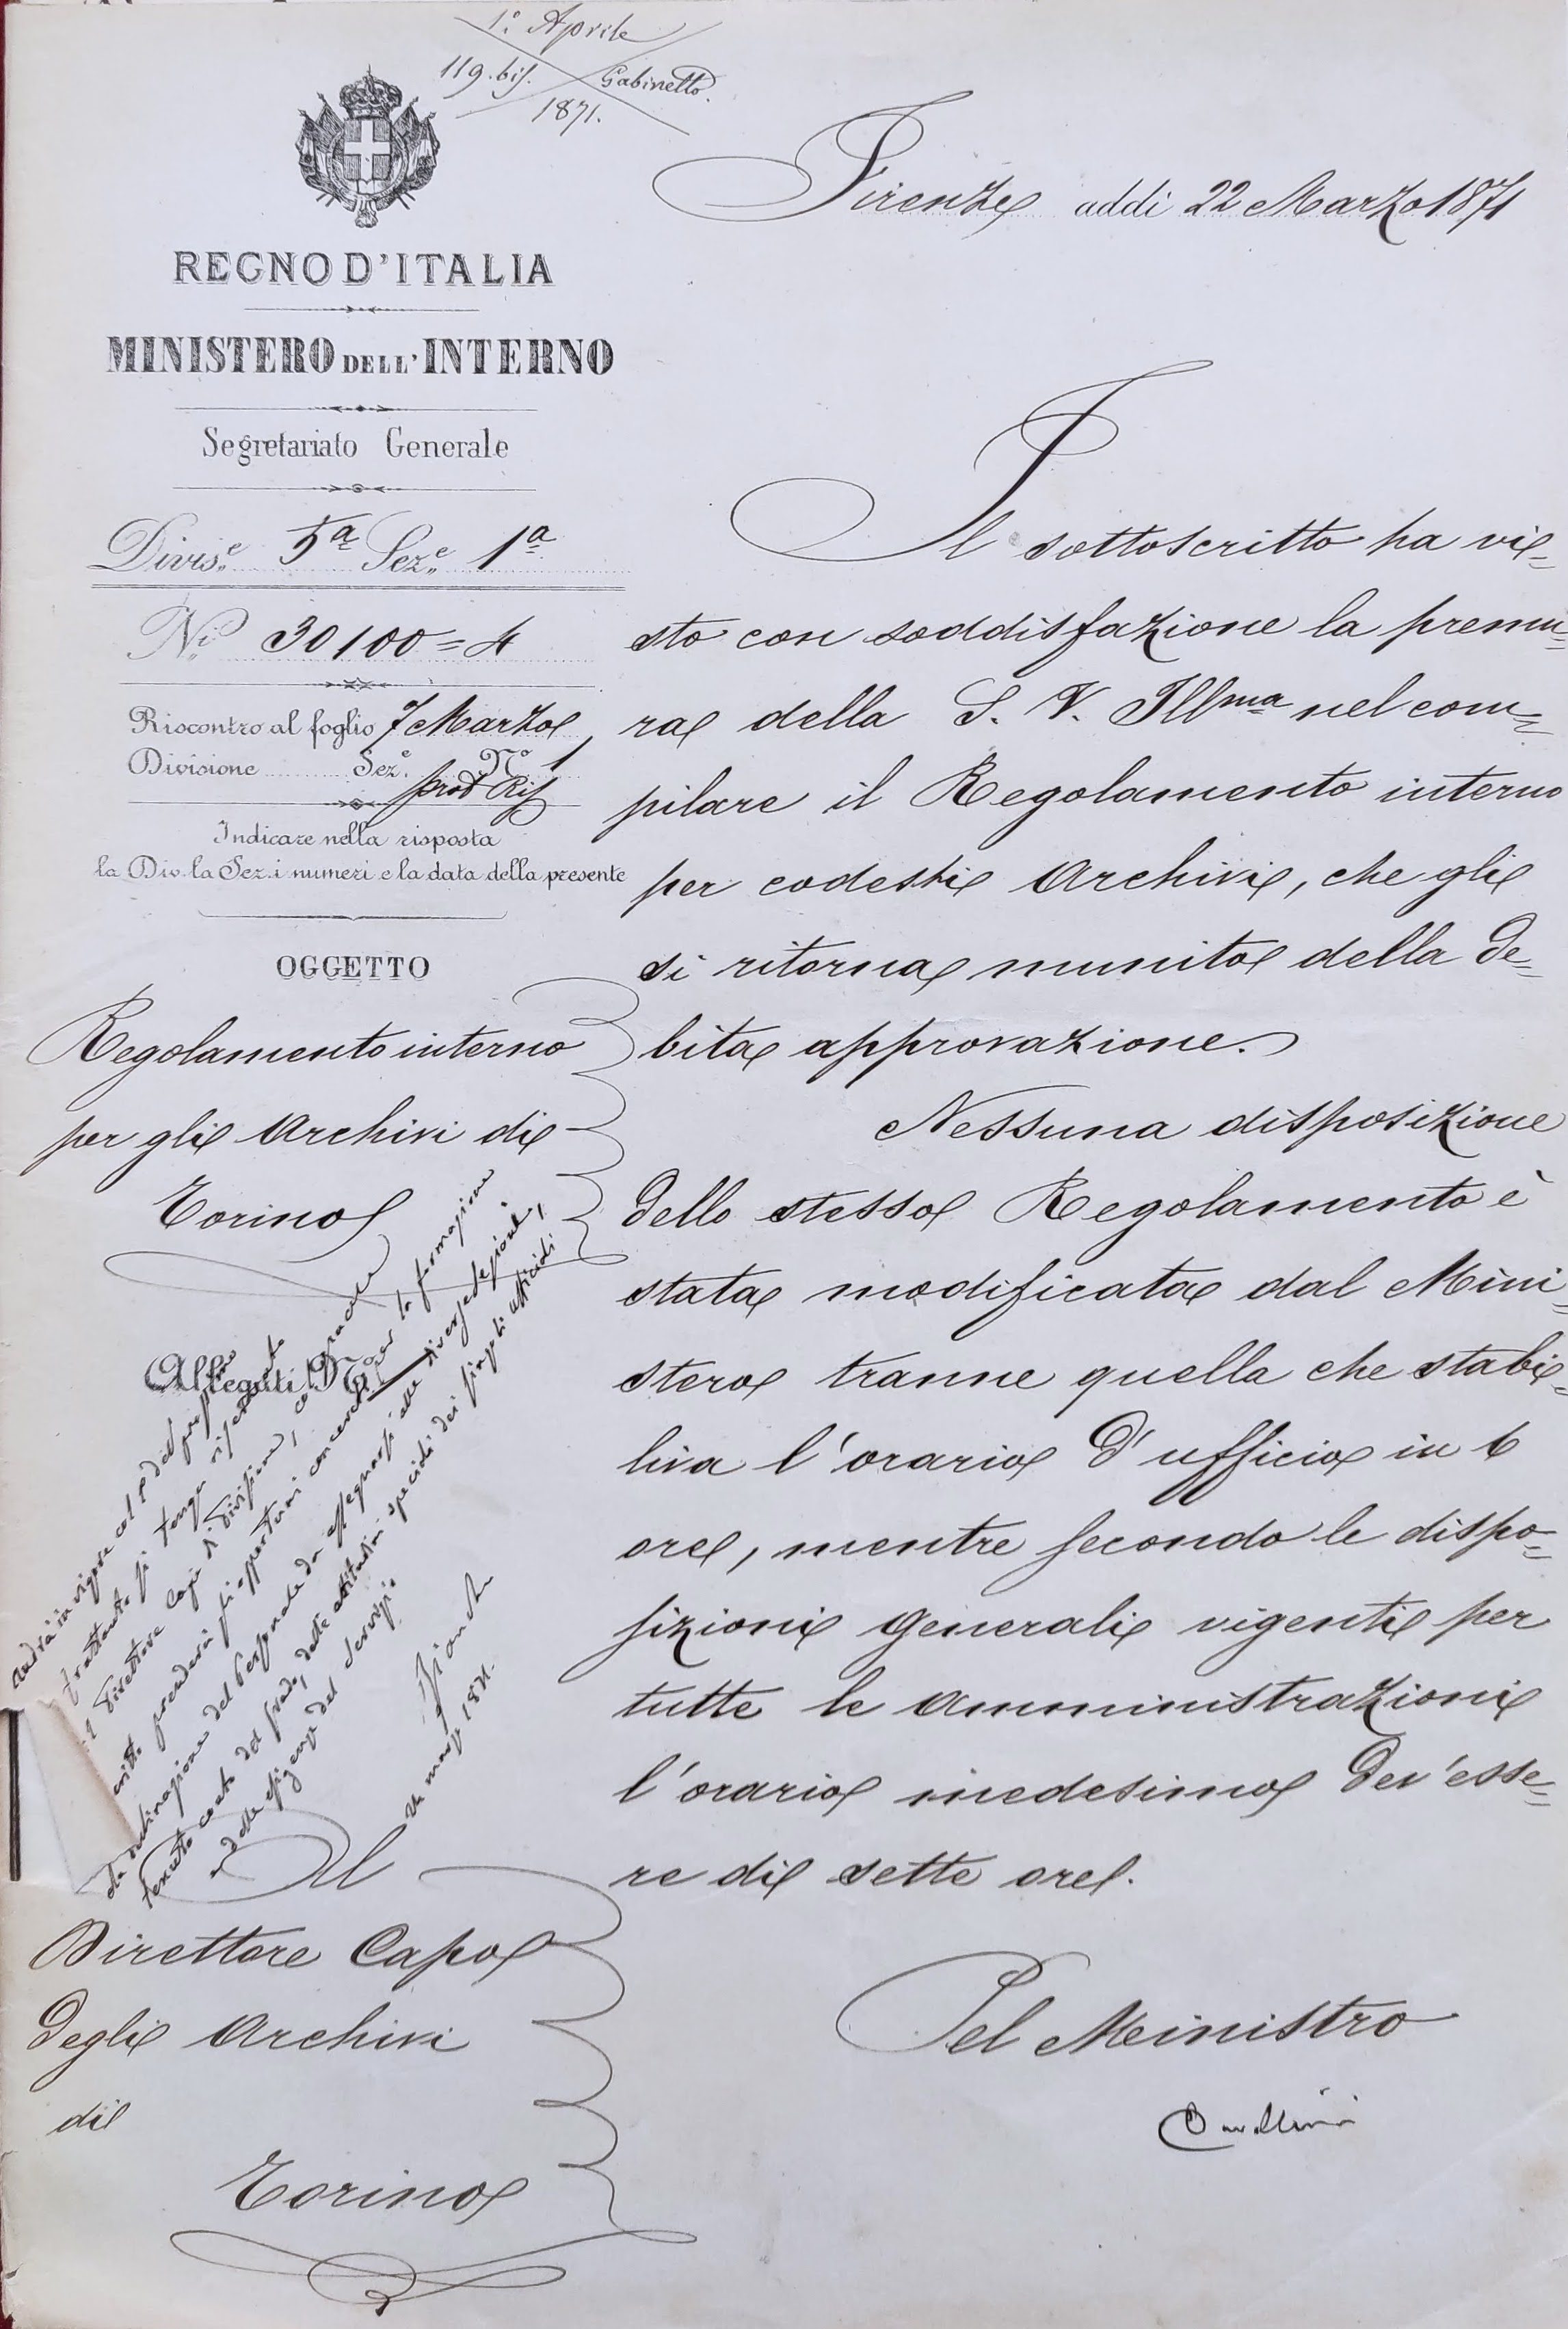 1.° Aprile
119.bis. Gabinetto.
1871.
REGNO D'ITALIA
MINISTERO DELL'INTERNO
Segretariato Generale
Divis.e 5a Sez.e 1a
N.° 30100=4
Riscontro al foglio 7 Marzo,
Divisione Sez.e N.° 1
prot Ris
Indicare nella risposta
la Div. la Sez. i numeri e la data della presente
OGGETTO
Regolamento interno
per gli Archivi di
Torino
Allegati N.°
Andrà in vigore col 1° del prossimo
frattanto si tenga riservato
il Direttore Capo di Divisione,
prenderà gli opportuni concerti per la formazione
del Personale da assegnarsi alle diverse sezioni,
tenuto conto del grado, delle attitudini speciali dei singoli ufficiali
e delle esigenze del servizio
marzo 1871.
Al
Direttore Capo
degli Archivi
di
Torino
Firenze addì 22 Marzo 1871
Il sottoscritto ha vi=
sto con soddisfazione la premu=
ra della S. V. Illma nel com=
pilare il Regolamento interno
per codesti Archivi, che gli
si ritorna munito della de=
bita approvazione.
Nessuna disposizione
dello stesso Regolamento è
stata modificata dal Mini=
stero tranne quella che stabi=
liva l'orario d'ufficio in 6
ore, mentre secondo le dispo=
sizioni generali vigenti per
tutte le Amministrazioni
l'orario medesimo dev'esse=
re di sette ore.
Pel Ministro
Cavallini